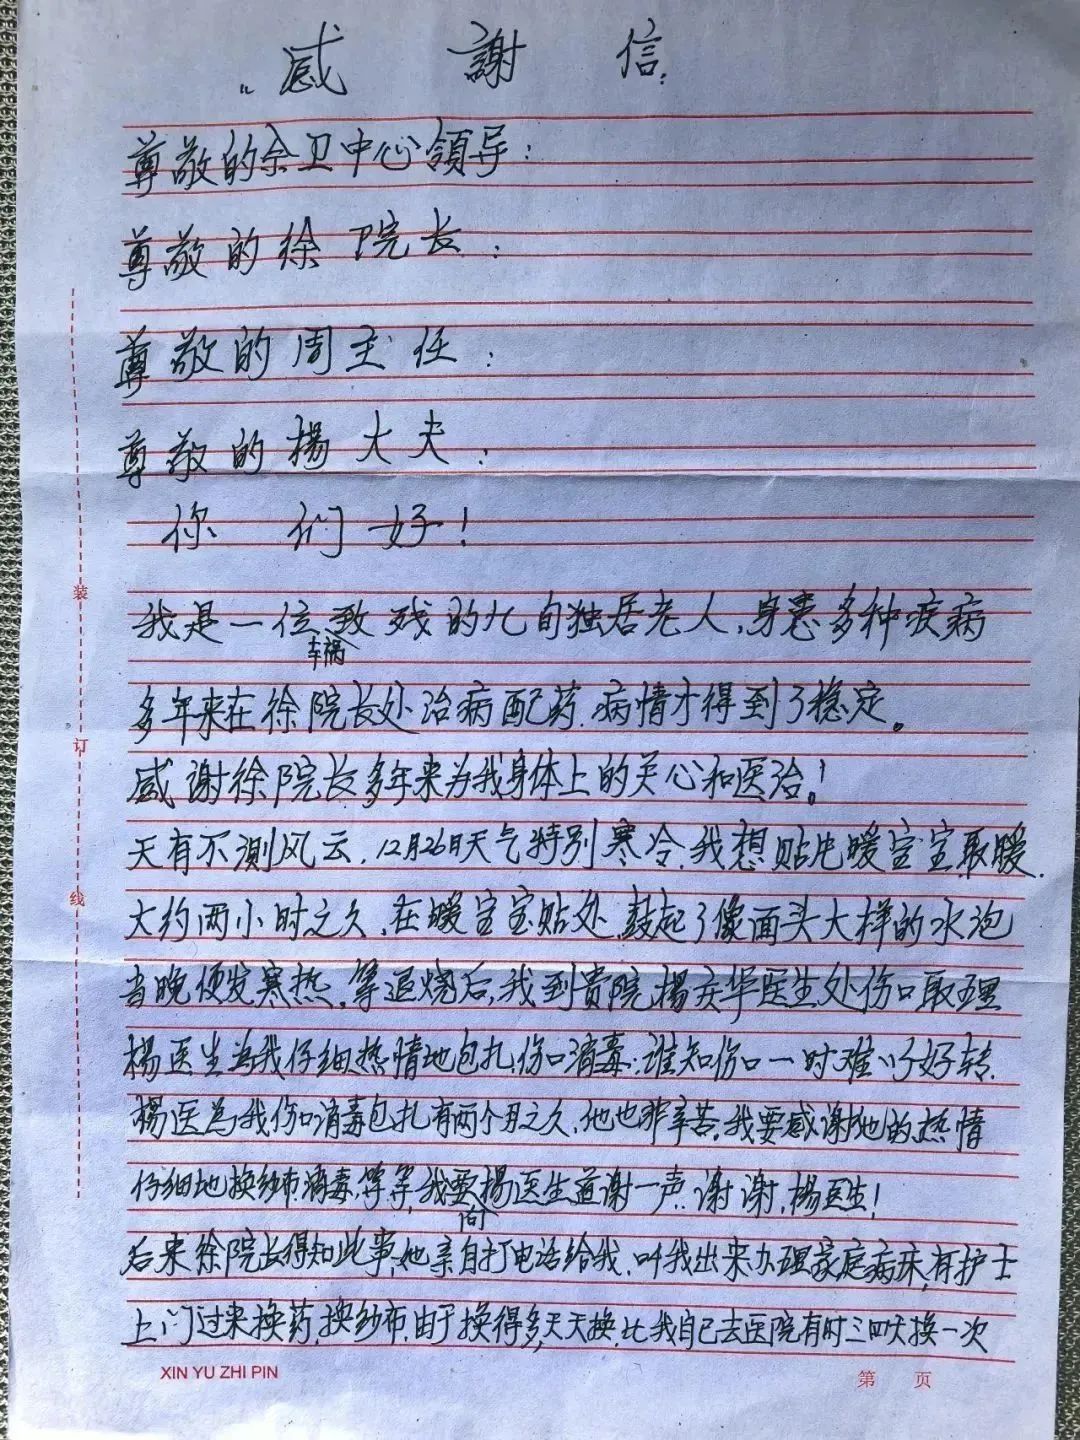 感謝信:
尊敬的余卫中心领导:
尊敬的徐院长:
尊敬的周主任:
尊敬的楊大夫:
你们好!
我是一位车祸致残的九旬独居老人,身患多种疾病
多年来在徐院长处治病配药.病情才得到了稳定。
感谢徐院长多年来为我身体上的关心和医治!
天有不测风云,12月26日天气特别寒冷,我想贴片暖宝宝取暖.
大约两小时之久,在暖宝宝贴处,鼓起了像面头大样的水泡
当晚便发寒热,等退烧后,我到贵院,楊庆华医生处伤口取理
楊医生为我仔细热情地包扎,伤口消毒:谁知伤口一时难以好转.
楊医为我伤口消毒包扎有两个月之久,他也非辛苦.我要感谢他的热情
仔细地换纱布,消毒,等等,我要向楊医生道谢一声:谢谢,楊医生!
后来徐院长得知此事,她亲自打电话给我.叫我出来办理家庭病床,有护士
上门过来换药,换纱布,由于换得多,天天换,比我自己去医院有时三四天换一次
装
订
线
XIN YU ZHI PIN
第 页